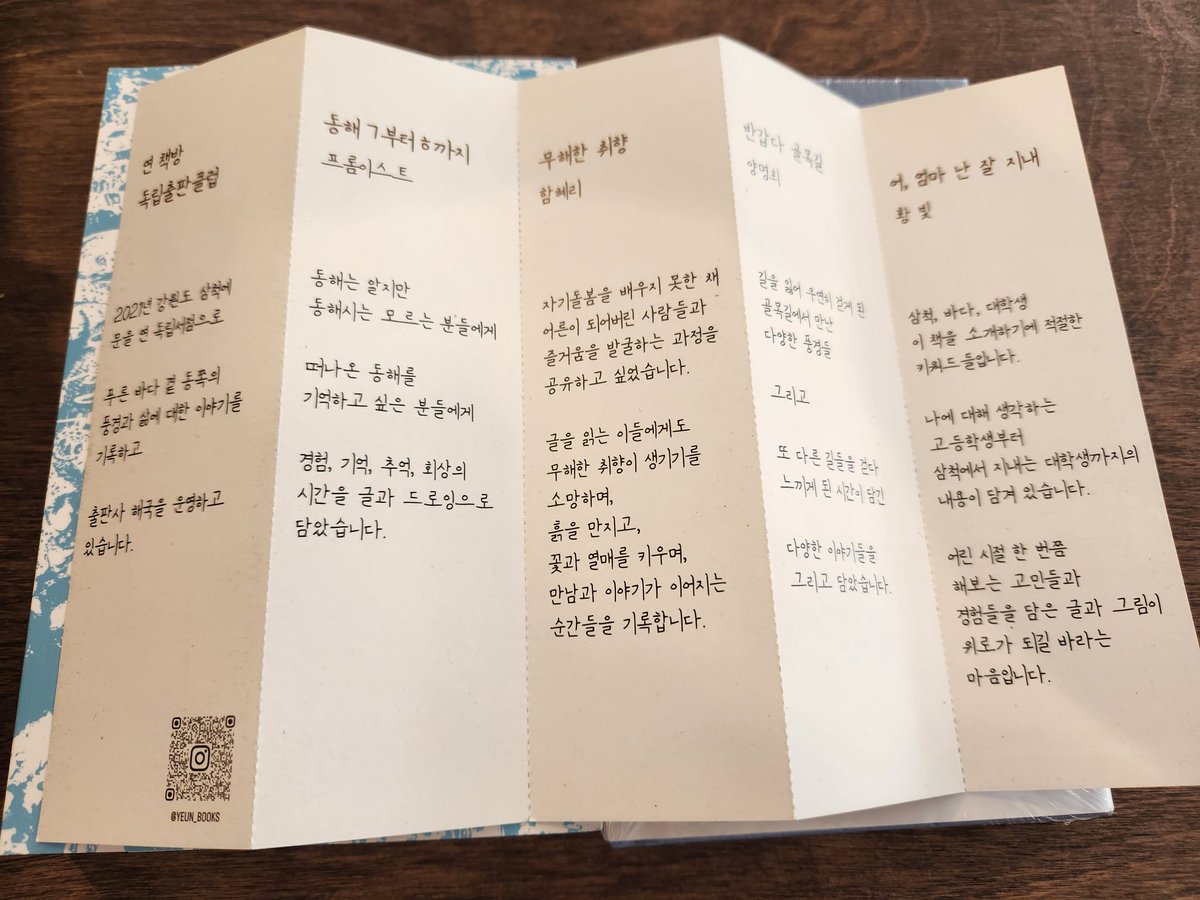 연 책방
독립출판클럽
2021년 강원도 삼척에
문을 연 독립서점으로
푸른 바다 곁 동쪽의
풍경과 삶에 대한 이야기를
기록하고
출판사 해국을 운영하고
있습니다.
@YEUN_BOOKS
동해 ㄱ부터 ㅎ까지
프롬이스트
동해는 알지만
동해시는 모르는 분들에게
떠나온 동해를
기억하고 싶은 분들에게
경험, 기억, 추억, 회상의
시간을 글과 드로잉으로
담았습니다.
무해한 취향
함혜리
자기돌봄을 배우지 못한 채
어른이 되어버린 사람들과
즐거움을 발굴하는 과정을
공유하고 싶었습니다.
글을 읽는 이들에게도
무해한 취향이 생기기를
소망하며,
흙을 만지고,
꽃과 열매를 키우며,
만남과 이야기가 이어지는
순간들을 기록합니다.
반갑다 골목길
양명희
길을 잃어 우연히 걷게 된
골목길에서 만난
다양한 풍경들
그리고
또 다른 길들을 걷다
느끼게 된 시간이 담긴
다양한 이야기들을
그리고 담았습니다.
어, 엄마 난 잘 지내
황빛
삼척, 바다, 대학생
이 책을 소개하기에 적절한
키워드들입니다.
나에 대해 생각하는
고등학생부터
삼척에서 지내는 대학생까지의
내용이 담겨 있습니다.
어린 시절 한 번쯤
해보는 고민들과
경험들을 담은 글과 그림이
위로가 되길 바라는
마음입니다.